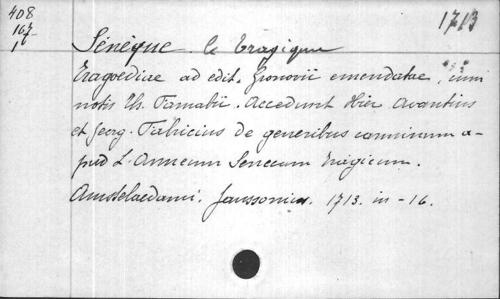 408
167
1
1713
Sénèque le tragique
tragoediae ad edit. Gronovii emendatae, cum
notis Th. Farnabii. Accedunt Hier Avantius
et Georg. Fabricius de generibus carminum a-
pud L. Anneum Senecum tragicum.
Amstelaedami. Janssonius. 1713. in-16.